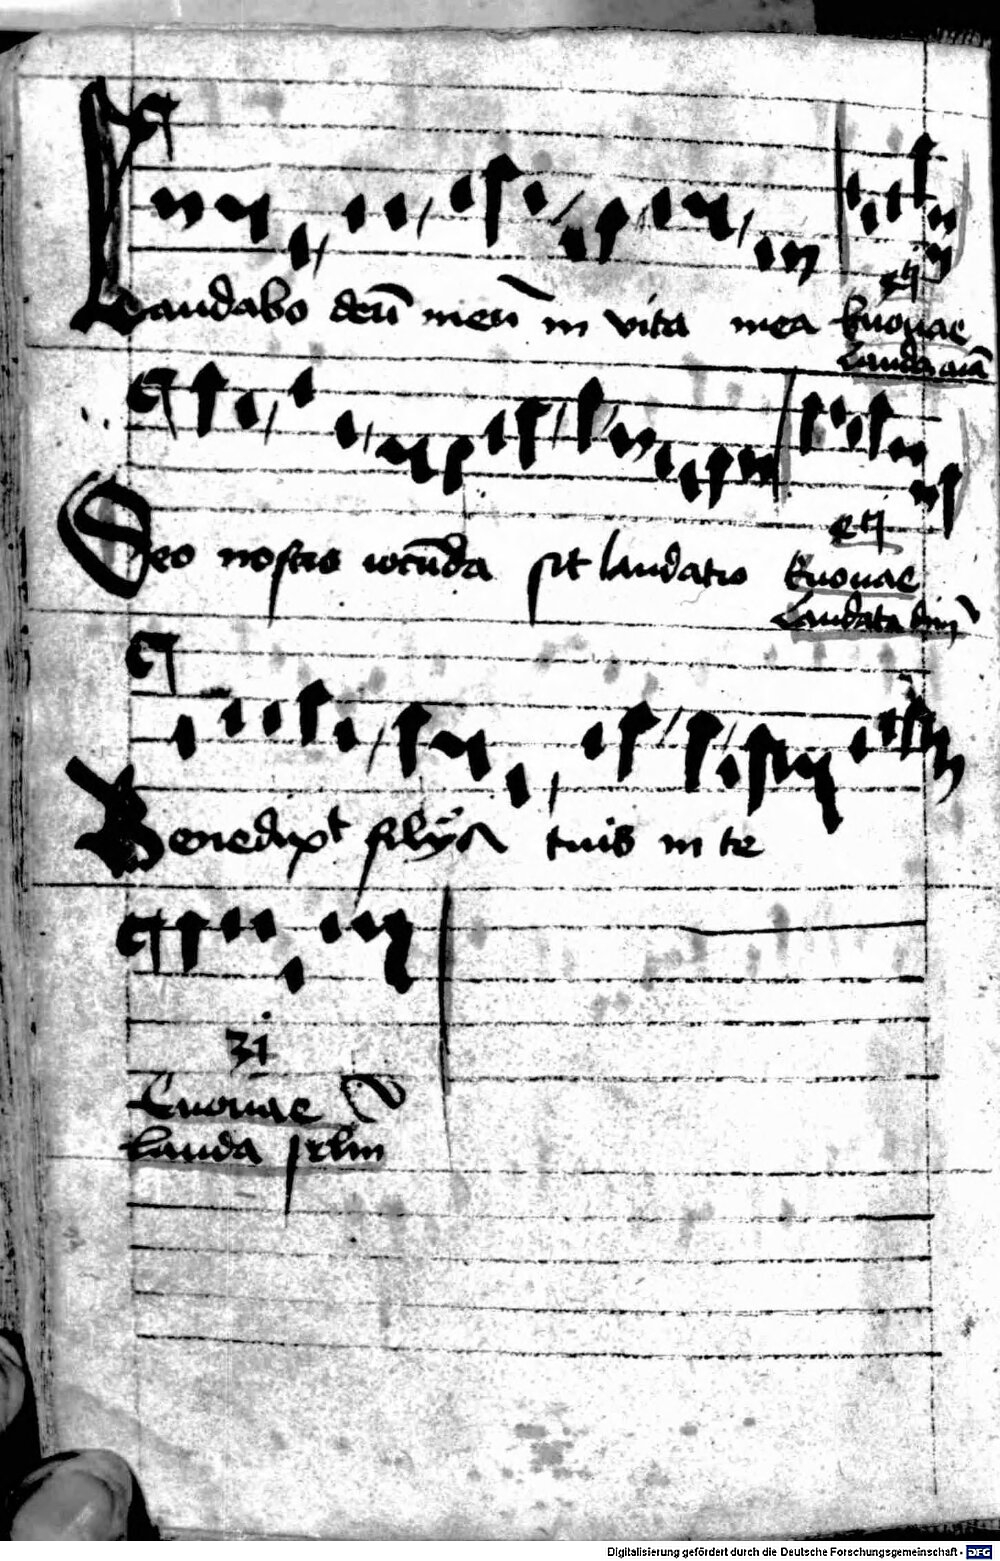 Laudabo deū meū in vita mea Euouae
Lauda aīa
Deo nostro iocūda sit laudatio Euouae
Laudate dnm
Benedixt filijs tuis in te
Euouae
Lauda ihrlm
Digitalisierung gefördert durch die Deutsche Forschungsgemeinschaft - DFG